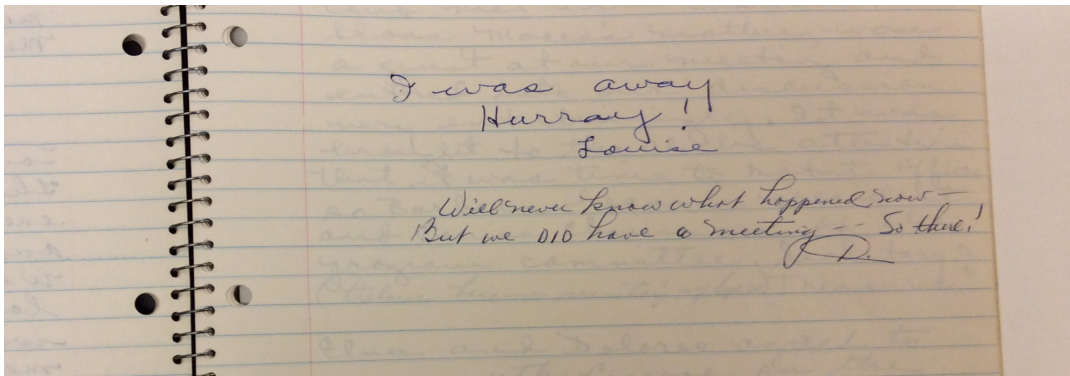 I was away
Hurray!
Louise
Will never know what happened now —
But we DID have a meeting -- So there!
D.